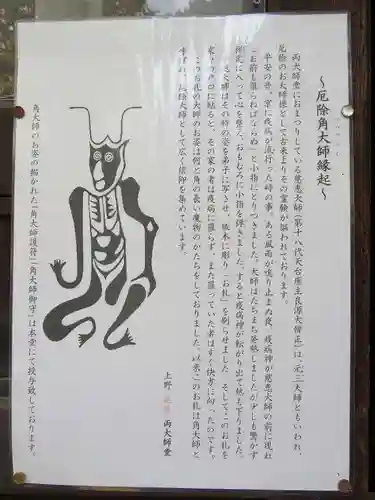 〜厄除角大師縁起〜
両大師堂におまつりしている慈恵大師(第十八代天台座主良源大僧正)は、元三大師ともいわれ、
厄除のお大師様として古来よりその霊験が謳われております。
平安の昔、京に疫病が流行った時の事。ある風雨が鳴り止まぬ夜、疫病神が慈恵大師の前に現れ
「お前も罹らねばならぬ」と小指にとりつきました。大師はたちまち発熱しましたが少しも驚かず
に入って心を整え、おもむろに小指を弾きました。すると疫病神が転がり出て熱も下りました。
大師はその時の姿を弟子に写させ、版木に彫り「お札」を刷らせました。そしてこのお札を
家々の戸口に貼ると、その家の者は疫病に罹らず、また罹っていた者はすぐ快方に向ったのです。
このお札の大師のお姿は何と角の長い魔物のかたちをしておりました。以来このお札は角大師と
大師として広く信仰を集めています。
上野 両大師堂
角大師のお姿の描かれた「角大師護符」「角大師御守」は本堂にて授与致しております。